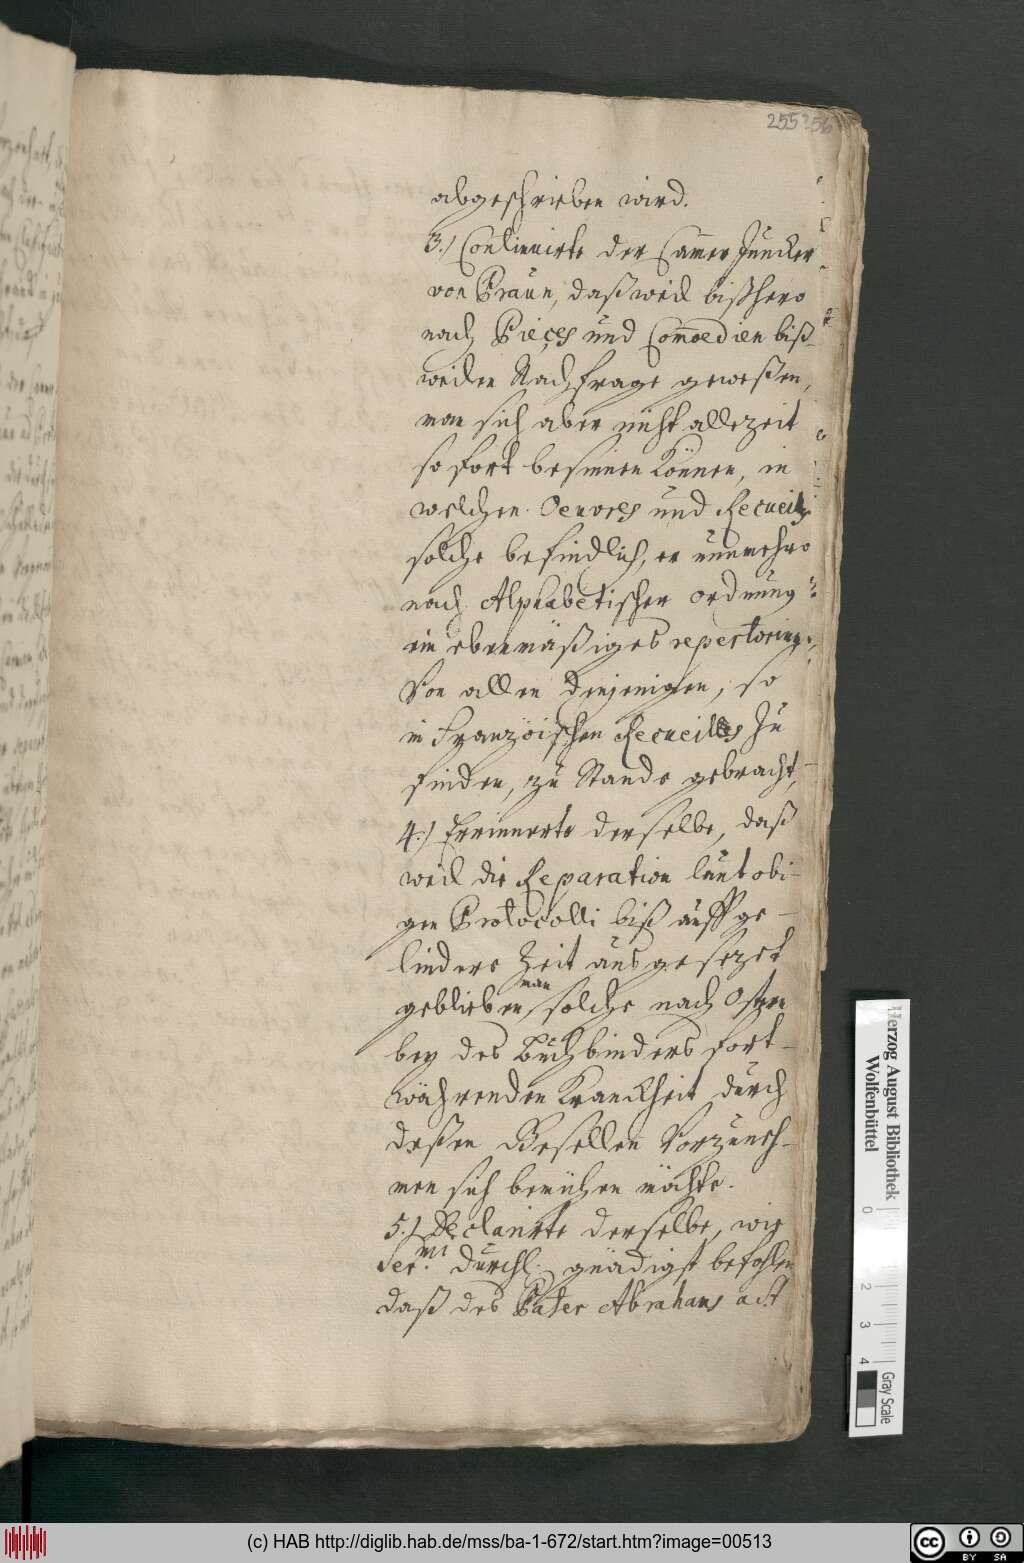 255 256
abgeschrieben wird.
3.) Continuirte der Camer Juncker
von Praun, daß weil bißhero
nach Pièces und Comoedien biß-
weilen Nachfrage geweßen,
man sich aber nicht allezeit
so fort besinnen können, in
welchen Oeuvres und Recueils
solche befindlich, er nunmehro
nach Alphabetischer ordnung
ein ebenmäßiges repertorium
von allen denjenigen, so
in Französischen Recueilles zu
finden, zu Stande gebracht,
4.) Errinnerte derselbe, daß
weil die Reparation laut obi-
gen Protocolli biß auff ge-
lindere Zeit ausgesezet
geblieben, man solche nach Ostern
bey des Buchbinders fort-
währenden Kranckheit durch
deßen Gesellen vorzuneh-
men sich bemühen möchte.
5.) Declarirte derselbe, wie
Ser.mi Durchl. gnädigst befohlen
daß des Pater Abrahams a St
Herzog August Bibliothek
Wolfenbüttel
0
2
3
4
Gray Scale
(c) HAB http://diglib.hab.de/mss/ba-1-672/start.htm?image=00513
cc BY SA